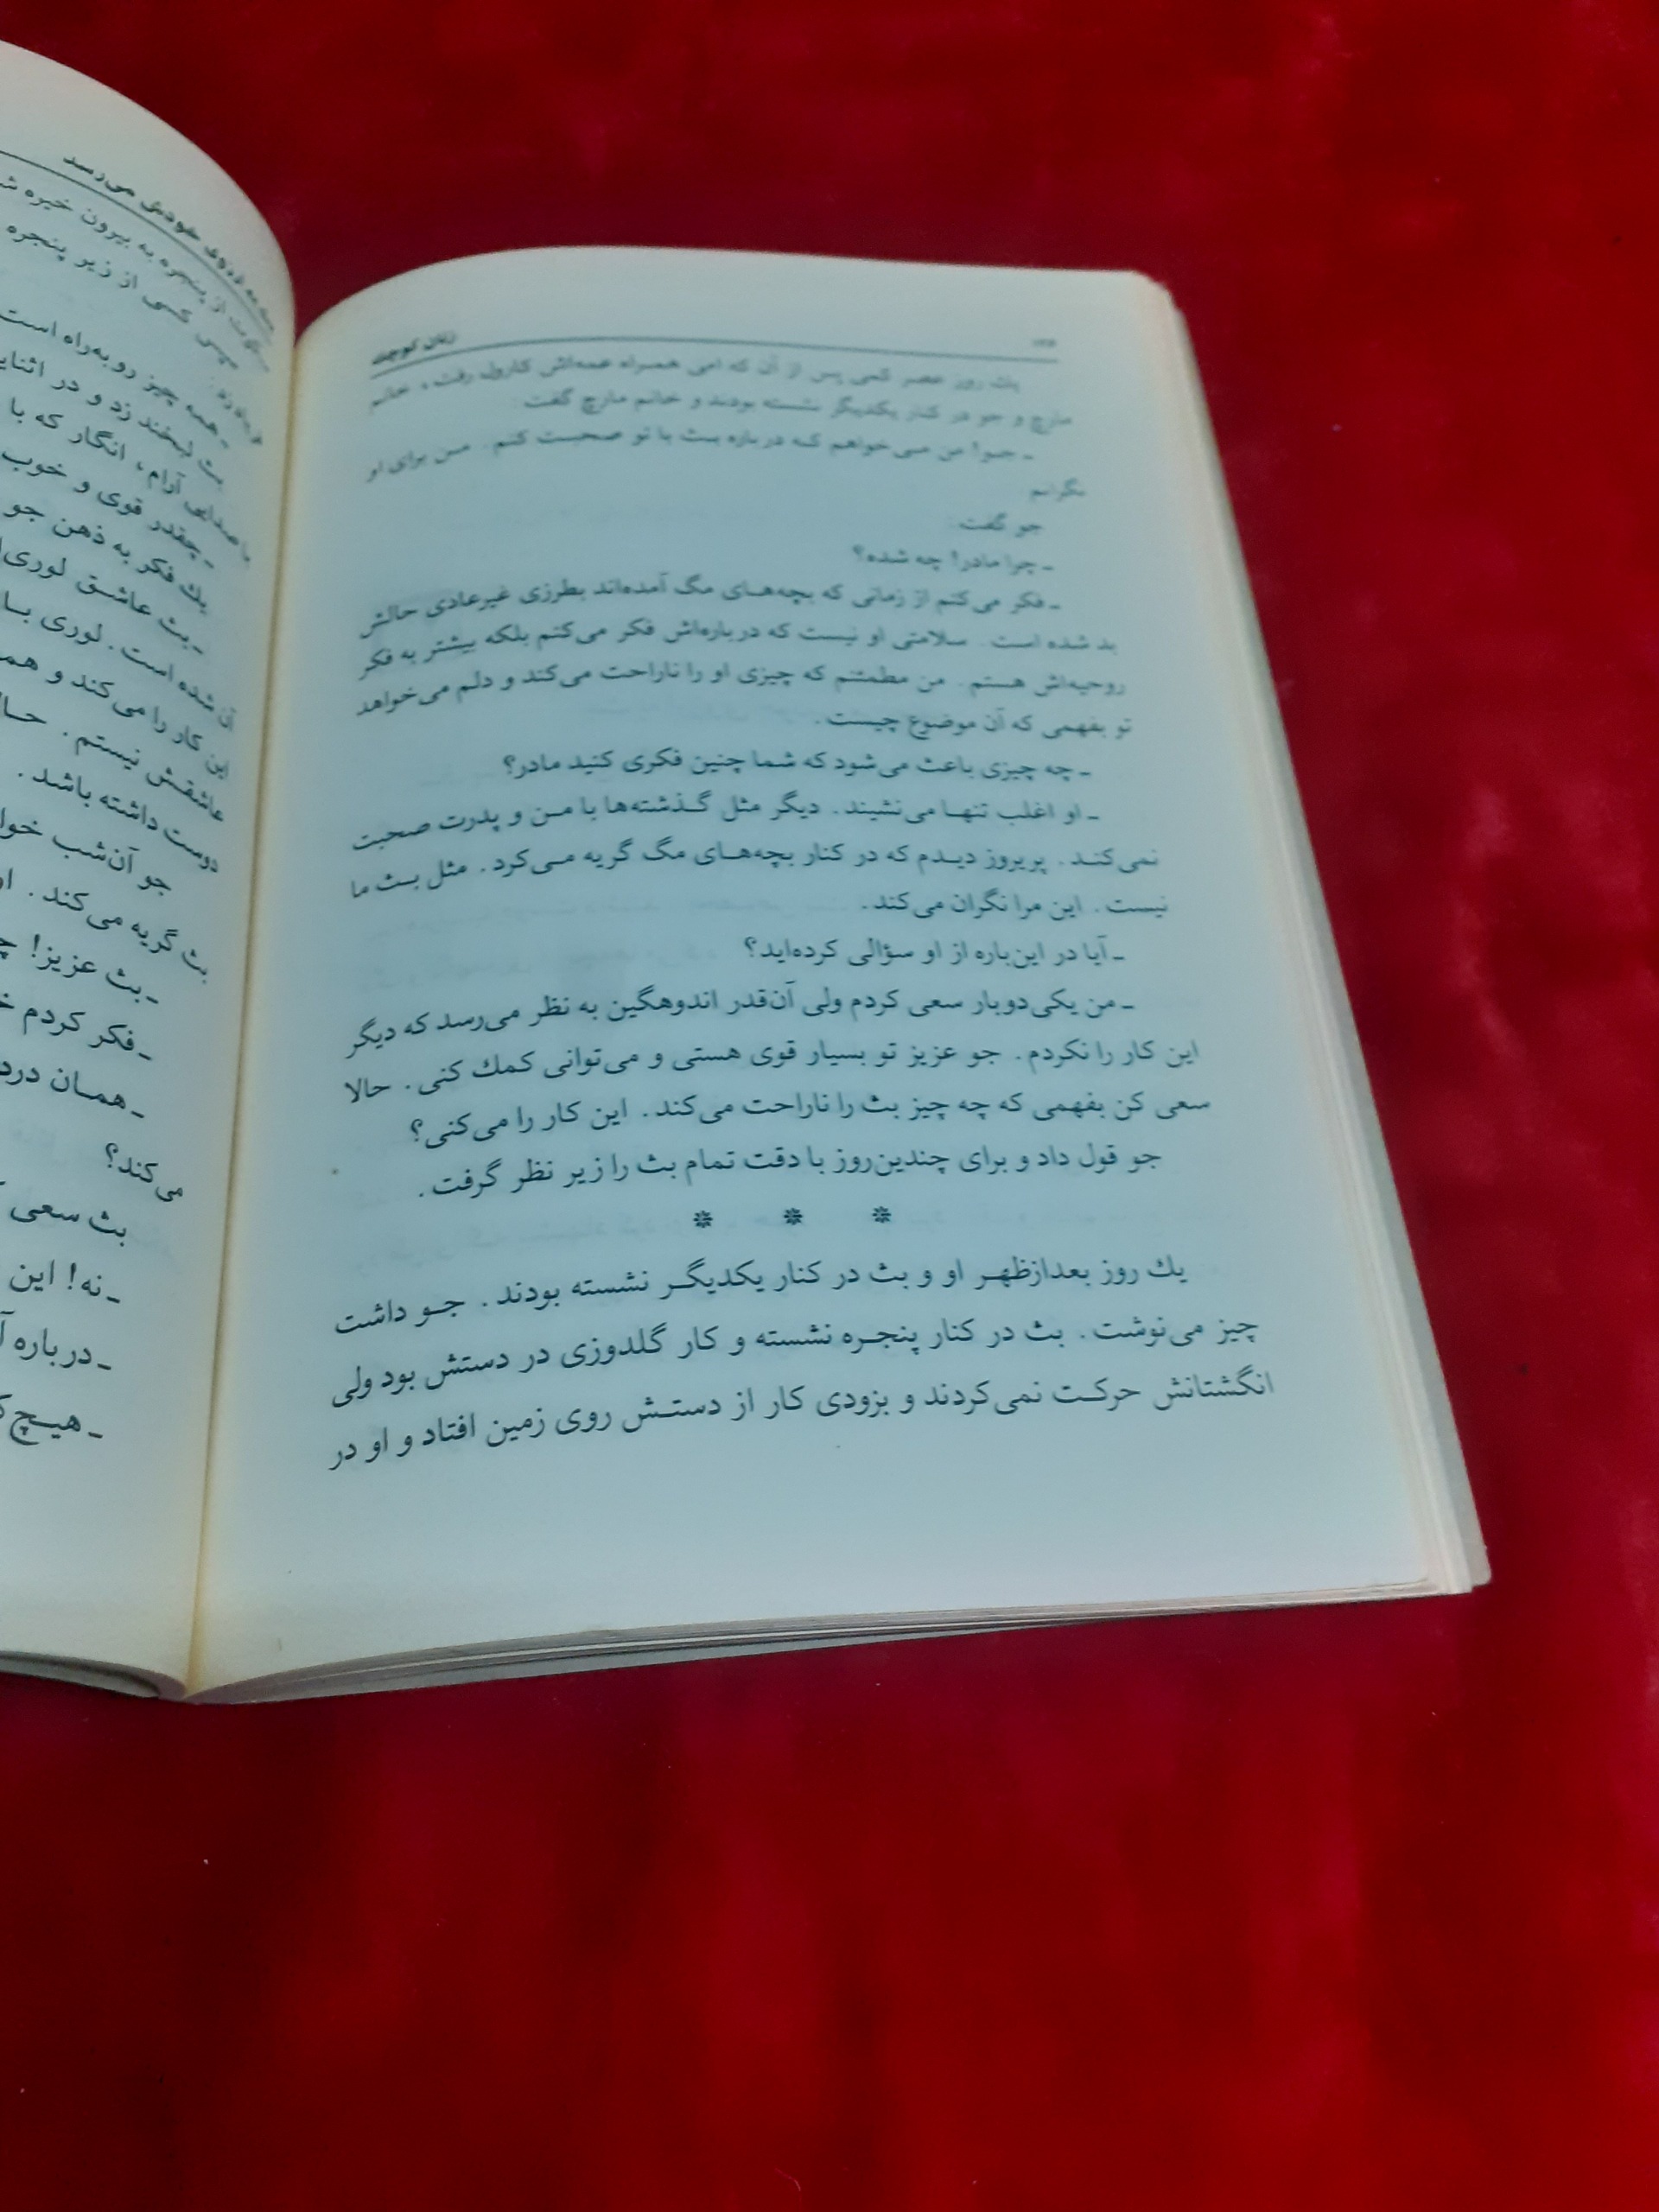 زنان کوچک
یك روز عصر کمی پس از آن که امی همراه عمه‌اش کارول رفت، خانم
مارچ و جو در کنار یکدیگر نشسته بودند و خانم مارچ گفت:
ـ جـو! من مـی‌خواهم کـه درباره بـث با تو صحبـت کنم. مـن برای او
نگرانم
جو گفت:
ـ چرا مادر! چه شده؟
ـ فکر می‌کنم از زمانی که بچه‌هـای مگ آمده‌اند بطرزی غیرعادی حالش
بد شده است. سلامتی او نیست که درباره‌اش فکر می‌کنم بلکه بیشتر به فکر
روحیه‌اش هستم. من مطمئنم که چیزی او را ناراحت می‌کند و دلم می‌خواهد
تو بفهمی که آن موضوع چیست.
ـ چه چیزی باعث می‌شود که شما چنین فکری کنید مادر؟
ـ او اغلب تنهـا می‌نشیند. دیگر مثل گـذشته‌ها با مـن و پدرت صحبت
نمی‌کنـد. پریروز دیـدم که در کنار بچه‌هـای مگ گریه مـی‌کرد. مثل بـث ما
نیست. این مرا نگران می‌کند.
ـ آیا در این‌باره از او سؤالی کرده‌اید؟
ـ من یکی‌دوبار سعی کردم ولی آن‌قدر اندوهگین به نظر می‌رسد که دیگر
این کار را نکردم. جو عزیز تو بسیار قوی هستی و می‌توانی کمك کنی. حالا
سعی کن بفهمی که چه چیز بث را ناراحت می‌کند. این کار را می‌کنی؟
جو قول داد و برای چندین‌روز با دقت تمام بث را زیر نظر گرفت.
* * *
یك روز بعدازظهـر او و بث در کنار یکدیگـر نشسته بودند. جـو داشت
چیز می‌نوشت. بث در کنار پنجـره نشسته و کار گلدوزی در دستش بود ولی
انگشتانش حرکـت نمی‌کردند و بزودی کار از دستـش روی زمین افتاد و او در
خودش می‌رسد
از پنجره به بیرون خیره
سپس کسی از زیر پنجره
ـ همه چیز روبه‌راه است
بث لبخند زد و در
با صدایی آرام، انگار که با
ـ چقدر قوی و خوب
یك فکر به ذهن جو
ـ بث عاشـق لوری
آن شده است. لوری بـا
این کار را می‌کند و
عاشقش نیستم.
دوست داشته باشد.
جو آن‌شب
بث گریه می‌کند.
ـ بث عزیز!
ـ فکر کردم
ـ همـان
می‌کند؟
بث سعی
ـ نه! این
ـ درباره
ـ هیـچ